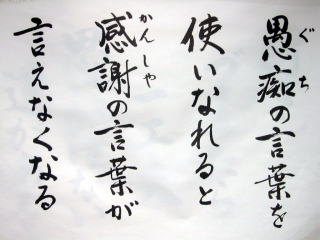 愚痴の言葉を
使いなれると
感謝の言葉が
言えなくなる
ぐち
かんしゃ